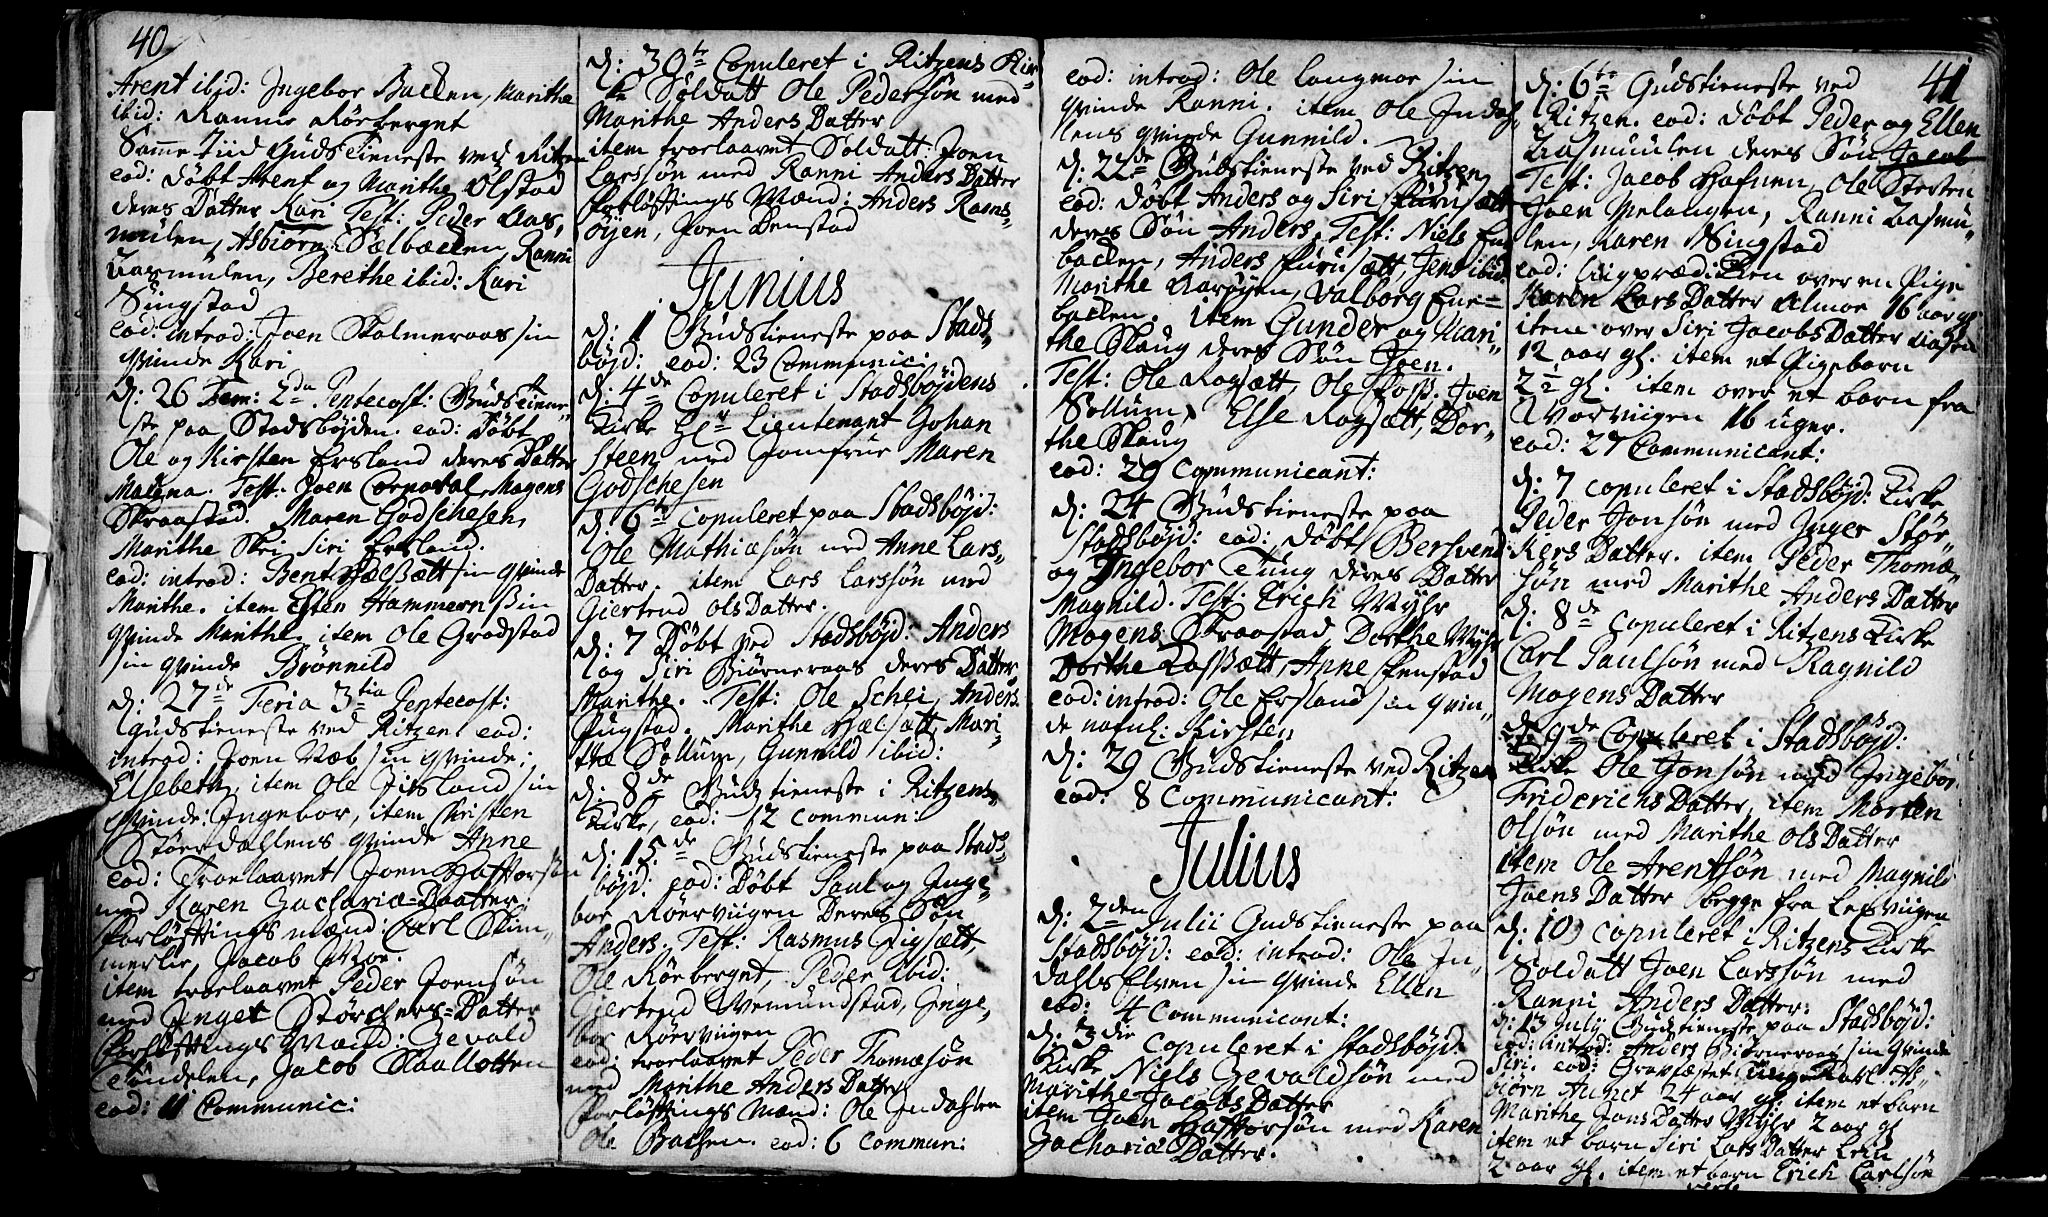 40
Arent ibid: Ingebor Backen, Marithe
ibid: Ranne Rörberget
Samme Tiid Gudstieneste ved Ritzen
eod: döbt Arent og Marithe Ölstad
deres Datter Kari Test: Peder Aas,
mulen, Asbiörn Sælbacken, Ranni
Aasmulen, Berethe ibid: Kari
Singstad
eod: introd: Joen Skalmeraas sin
qvinde Kari
d: 26 Fem: 2da Pentecost: Gudstiene,,
ste paa Stadsböjden. eod: Döbt
Ole og Kirsten Ersland deres Datter
Malena. Test: Joen Cornetal, Mogens
Skraastad. Maren Godschesen,
Marithe Skei Siri Ersland.
eod: introd: Bent Hælsætt sin qvinde
Marithe. item Esten Hammern sin
qvinde Marithe. item Ole Gradstad
sin qvinde Brönnild
d: 27de Feria 3tia Pentecost:
Gudstieneste ved Ritzen eod:
introd: Joen Næb sin qvinde:
Elsebeth, item Ole Fisland sin
qvinde: Ingebor, item Christen
Stöerdahlens qvinde Anne
eod: Troelaavet Joen Haftorsøn
med Karen Zacharia=Daatter
forlöftings mænd: Carl Skim,,
merlie, Jacob Moe.
item troelaavet Peder Joensön
med Inger Störchers=Datter
forlöftings Mænd: Gevald
Töndelen, Jacob Skaalotten
eod: 11 Communic:
d: 30te Copuleret i Ritzens Kir=
ke Soldatt Ole Pedersön med
Marithe Anders Datter
item troelaavet Soldatt Joen
Larssön med Ranni Anders Datter
forlöftings Mænd: Anders Rams,
öyen, Joen Denstad
Junius
d: 1 Gudstieneste paa Stads,,
böjd: eod: 23 Communic:
d: 4de Copuleret i Stadsböjdens
Kirke Hr Lieutenant Johan
Steen med Jomfrue Maren
Godschesen
d: 6te Copuleret paa Stadsböjd:
Ole Mathiæsön med Anne Lars,,
Datter. item Lars Larssön med
Giertrud Ols Datter.
d: 7 Döbt ved Stadsböjd: Anders
og Siri Biörneraas deres Datter
Marithe. Test: Ole Schei, Anders
Rugstad. Marithe Hælsætt, Mari,,
the Sollum, Gunnild ibid:
d: 8de Gudstieneste i Ritzens
Kirke, eod: 12 Commun:
d: 15de Gudstieneste paa Stads=
böjd: eod: Döbt Paul og Inge,
bor Röerviigen Deres Sön
Anders. Test: Rasmus Pigsætt,
Ole Rörberget, Peder ibid:
Giertrud Wemundstad, Inge,,
bor Röerviigen
eod: troelaavet Peder Thomæsön
med Marithe Anders Datter
forlöftings Mænd: Ole Indahlen
Ole Bachen. eod: 6 Commun:
eod: introd: Ole Langmoe sin
qvinde Ranni. item Ole Indah,
lens qvinde Gunnild.
d: 22de Gudstieneste ved Ritzen,
eod: döbt Anders og Siri Furusætt
deres Sön Anders. Test: Niels Eng
backen, Anders Furusætt, Jens ibid:
Marithe Aaröyen, Valborg Ene=
backen. Item Gunder og Mari,,
the Skaug deres Sön Joen.
Test: Ole Rogsætt, Ole Foss. Joen
Sollum, Else Rogsætt, Dor,,
the Skaug
eod: 29 Communicant:
d: 24 Gudstieneste paa
Stadsböjd: eod: döbt Bersvend
og Ingebor Tung deres Datter
Magnild. Test: Erich Myhr
Mogens Skraastad Dorthe Myhr
Dorthe Aassætt, Anne Fenstad
eod: introd: Ole Ersland sin qvin,,
de nafnl: Kirsten
d: 29 Gudstieneste ved Ritzen
eod: 8 Communicant:
Julius
d: 2den Julii Gudstieneste paa
Stadsböjd: eod: introd: Ole In,,
dahls Elven sin qvinde Ellen
eod: 4 Communicant:
d: 3die copuleret i Stadsböjd:
Kirke Niels Gevaldsön med
Marithe Jacobs Datter
item Joen Haftorsön med Karen
Zachariæ Datter.
41
d: 6te Gudstieneste ved
Ritzen. eod: döbt Peder og Ellen
Aasmuulen deres Sön Jacob
Test: Jacob Hafnen, Ole Sterten
Joen Selangen, Ranni Aasmu,,
len, Karen Singstad
eod: Liigprædicken over en Pige
Karen Lars Datter Almoe 16 aar gl
item over Siri Jacobs Datter Aasen
12 aar gl. item et Pigebarn
2½ gl. item over et barn fra
Morviigen 16 uger.
eod: 27 Communicant:
d: 7 copuleret i Stadsböjd: Kirke
Peder Jonsön med Inger Stör,,
kers Datter. item Peder Thomæ,,
sön med Marithe Anders Datter
d: 8de copuleret i Ritzens Kirke
Carl Paulsön med Ragnild
Mogens Datter
d: 9de Copuleret i Stadsböjd:
Kirke Ole Jonsön med Ingebor
Friderichs Datter, item Morten
Olsön med Marithe Ols Datter
item Ole Arentsön med Magnild
Joens Datter begge fra Lefviigen
d: 10 copuleret i Ritzens Kirke
Soldatt Joen Larssön med
Ranni Anders Datter:
d: 13 July Gudstieneste paa Stadsböjd:
eod: introd: Anders Biörneraas sin qvinde
Siri. eod: Gravfæstet unge Karl As,,
biörn Aunet 24 aar gl. item et barn
Marithe Jons Datter Myhr 2 aar gl
item et barn Siri Lars Datter Lein
2 aar gl. item et barn Erich Carlsön